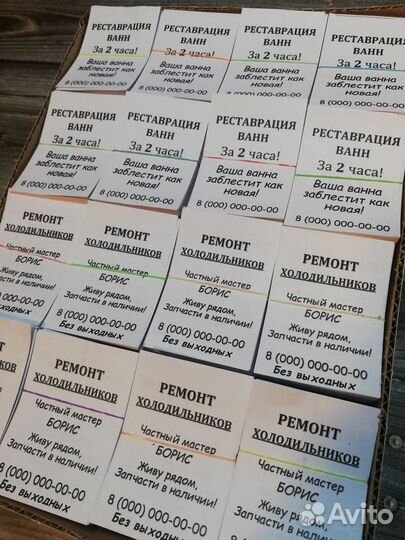 РЕСТАВРАЦИЯ
ВАНН
За 2 часа!
Ваша ванна
заблестит как
новая!
8 (000) 000-00-00
РЕСТАВРАЦИЯ
ВАНН
За 2 часа!
Ваша ванна
заблестит как
новая!
8 (000) 000-00-00
РЕСТАВРАЦИЯ
ВАНН
За 2 часа!
Ваша ванна
заблестит как
новая!
8 (000) 000-00-00
РЕСТАВРАЦИЯ
ВАНН
За 2 часа!
Ваша ванна
заблестит как
новая!
РЕСТАВРАЦИЯ
ВАНН
За 2 часа!
Ваша ванна
заблестит как
новая!
8 (000) 000-00-00
РЕСТАВРАЦИЯ
ВАНН
За 2 часа!
Ваша ванна
заблестит как
новая!
8 (000) 000-00-00
РЕСТАВРАЦИЯ
ВАНН
За 2 часа!
Ваша ванна
заблестит как
новая!
8 (000) 000-00-00
РЕСТАВРАЦИЯ
ВАНН
За 2 часа!
Ваша ванна
заблестит как
новая!
8 (000) 000-00-00
РЕМОНТ
ХОЛОДИЛЬНИКОВ
Частный мастер
БОРИС
Живу рядом,
Запчасти в наличии!
8 (000) 000-00-00
Без выходных
РЕМОНТ
ХОЛОДИЛЬНИКОВ
Частный мастер
БОРИС
Живу рядом,
Запчасти в наличии!
8 (000) 000-00-00
Без выходных
РЕМОНТ
ХОЛОДИЛЬНИКОВ
Частный мастер
БОРИС
Живу рядом,
Запчасти в наличии!
8 (000) 000-00-00
Без выходных
РЕМОНТ
ХОЛОДИЛЬНИКОВ
Частный мастер
БОРИС
Живу рядом,
Запчасти в наличии!
8 (000) 000-00-00
Без выходных
РЕМОНТ
ХОЛОДИЛЬНИКОВ
Частный мастер
БОРИС
Живу рядом,
Запчасти в наличии!
8 (000) 000-00-00
Без выходных
РЕМОНТ
ХОЛОДИЛЬНИКОВ
Частный мастер
БОРИС
Живу рядом,
Запчасти в наличии!
8 (000) 000-00-00
Без выходных
РЕМОНТ
ХОЛОДИЛЬНИКОВ
Частный мастер
БОРИС
Живу рядом,
Запчасти в наличии!
Avito